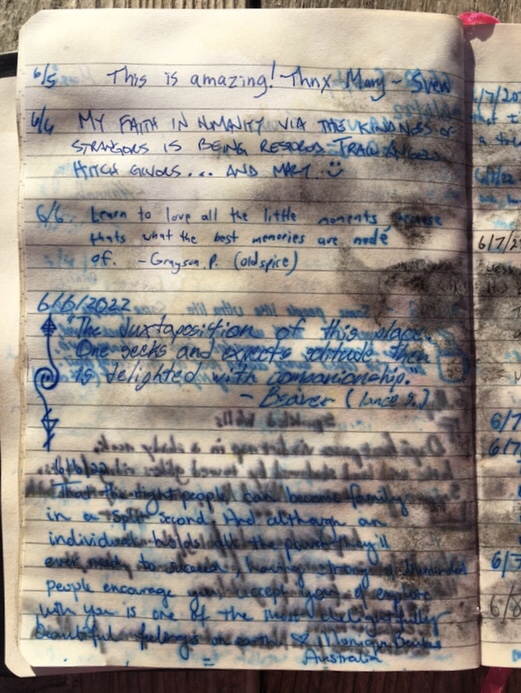 6/5 This is amazing! Thnx Mary -
6/6 MY FAITH IN HUMANITY VIA THE KINDNESS OF
STRANGERS IS BEING RESTORED. TRAIL ANGELS
HITCH GIVERS... AND MARY. :)
6/6. Learn to love all the little moments, because
thats what the best memories are made
of. - Grayson P. (oldspice)
6/6/2022
"The Juxtaposition of this place.
One seeks and expects solitude then
is delighted with companionship."
- Beaver (Lance S.)
6/6/22
That the right people can become family
in a split second. And although an
individual holds all the power they'll
ever need to succeed, having
people encourage you, accept you, & explore
with you is one of the most delightfully
beautiful feelings on earth
Australia
6/7/2
6/7
6/7